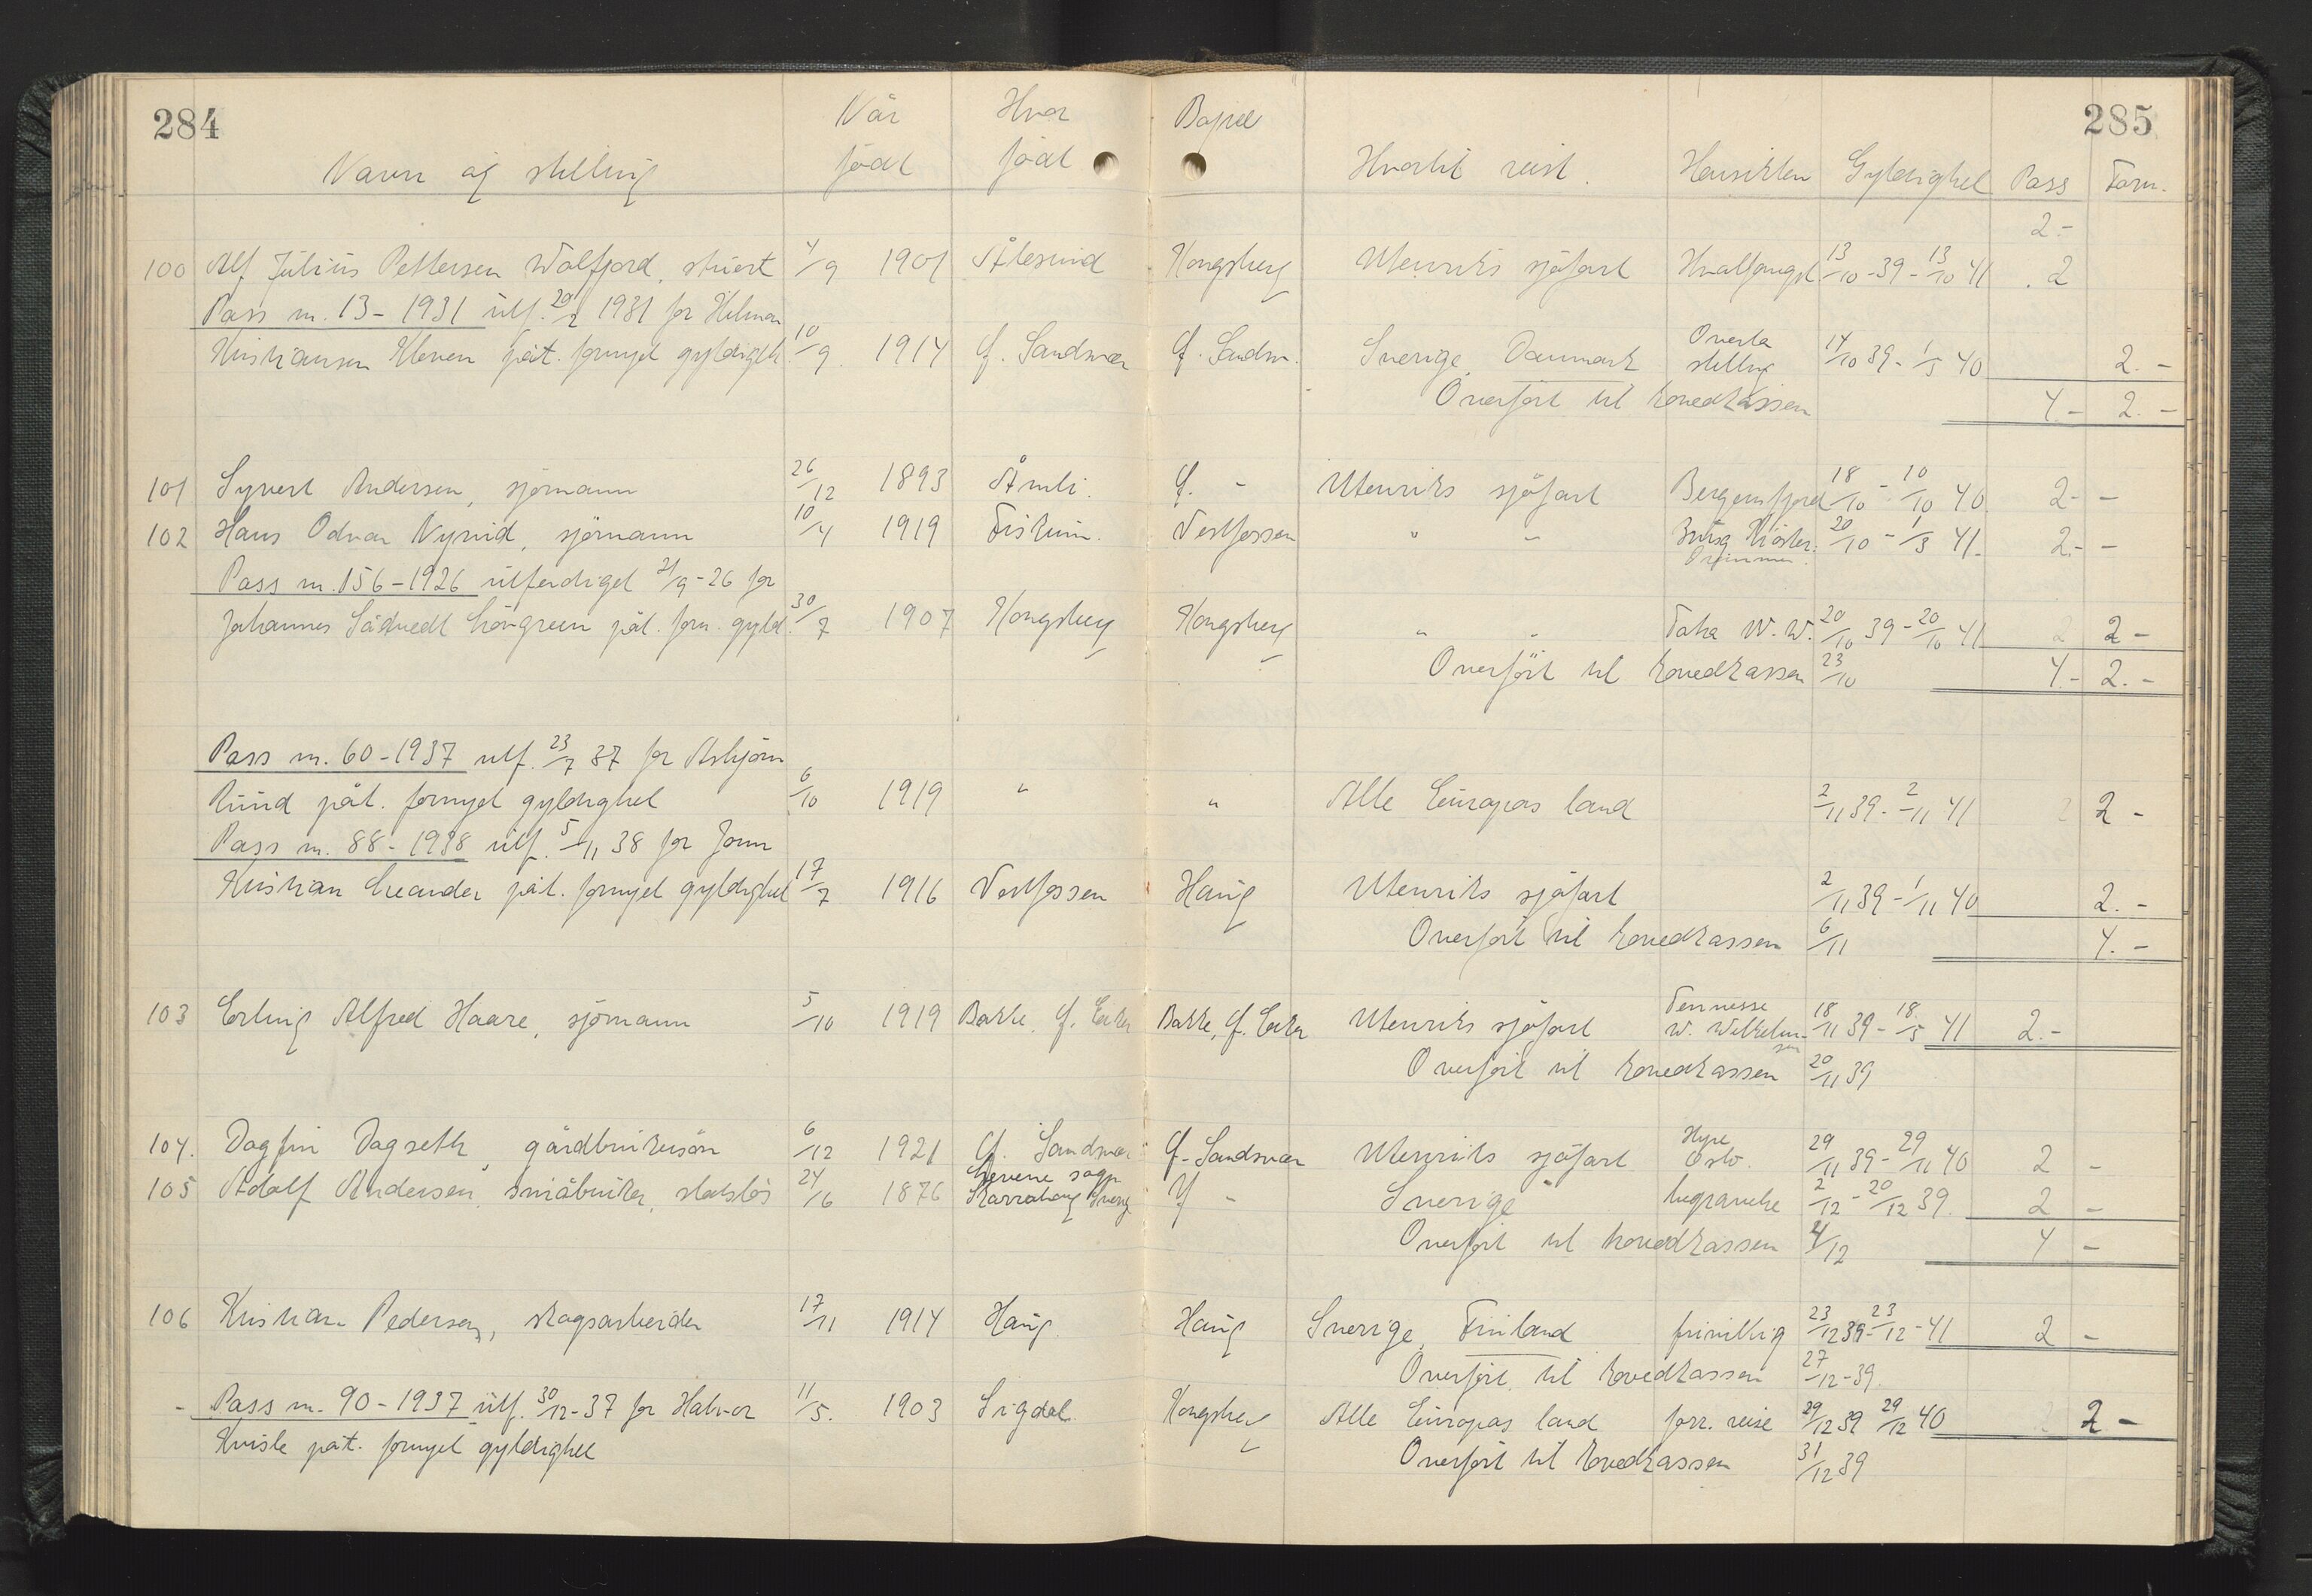 284
285
Når Hvor Bopel
Navn og stilling født født Hvortil reist. Hensikten Gyldighet Pass Forn.
2.-
100 Alf Julius Pettersen Wolfjord, stuert 4/9 1901 Ålesund Kongsberg Utenriks sjöfart Hvalfangst 13/10-39-13/10 41 2
Pass nr. 13-1931 utf. 20/2 1931 for Hilmar
Kristiansen Kleven påt. fornyet gyldigh. 10/9 1914 Y. Sandsvær Y. Sandsv. Sverige, Danmark Overta stilling 14/10 39-1/5 40 2.-
Overfört til hovedkassen 4.- 2.-
101 Syvert Andersen, sjömann 26/12 1893 Åmli. Y. - Utenriks sjöfart Bergensfjord 18/10 - 10/10 40 2.- -
102 Hans Odvar Nyrud, sjömann 10/4 1919 Fiskum. Vestfossen " - 20/10 - 1/3 41. 2.- -
Pass nr. 156-1926 utferdiget 21/9-26 for
Johannes påt. forn. gyld. 30/7 1907 Kongsberg Kongsberg " - W. W. 20/10 39-20/10 41 2 2-
Overfört til hovedkassen 23/10 4.- 2.-
Pass nr. 60-1937 utf. 23/7 37 for Asbjörn
Ruud påt. fornyet gyldighet 6/10 1919 " " Alle Europas land 2/11 39-2/11 41 2 2-
Pass nr. 88-1938 utf. 5/11 38 for
Kristian påt. fornyet gyldighet 17/7 1916 Vestfossen Haug Utenriks sjöfart 2/11 39-1/11 40 2.-
Overfört til hovedkassen 6/11 4.-
103 Erling Alfred Haare, sjömann 5/10 1919 Bakke, Y. Eiker Bakke, Y. Eiker Utenriks sjöfart Tennesse W. Wilhelmsen 18/11 39-18/5 41 2.-
Overfört til hovedkassen 20/11 39
104. Dagfin Dagseth, gårdbrukersön 6/12 1921 Y. Sandsvær Y. Sandsvær Utenriks sjöfart Hyre Oslo. 29/11 39-29/11 40 2 -
105 Adolf Andersen, småbruker, statslös 24/6 1876 Levene sogn Skaraborg Sverig Y - Sverige 2/12-20/12 39. 2 -
Overfört til hovedkassen 4/12 4 -
106 Kristian Pedersen, skogsarbeider 17/11 1914 Haug. Haug Sverige, Finland frivillig 23/12 39-23/12-41 2 -
Overfört til hovedkassen 27/12-39.
- Pass nr. 90-1937 utf. 30/12-37 for Halvor 11/5. 1903 Sigdal. Kongsberg Alle Europas land forr. reise 29/12 39 29/12 40 2 2-
Kvisle påt. fornyet gyldighet Overfört til hovedkassen 31/12 39